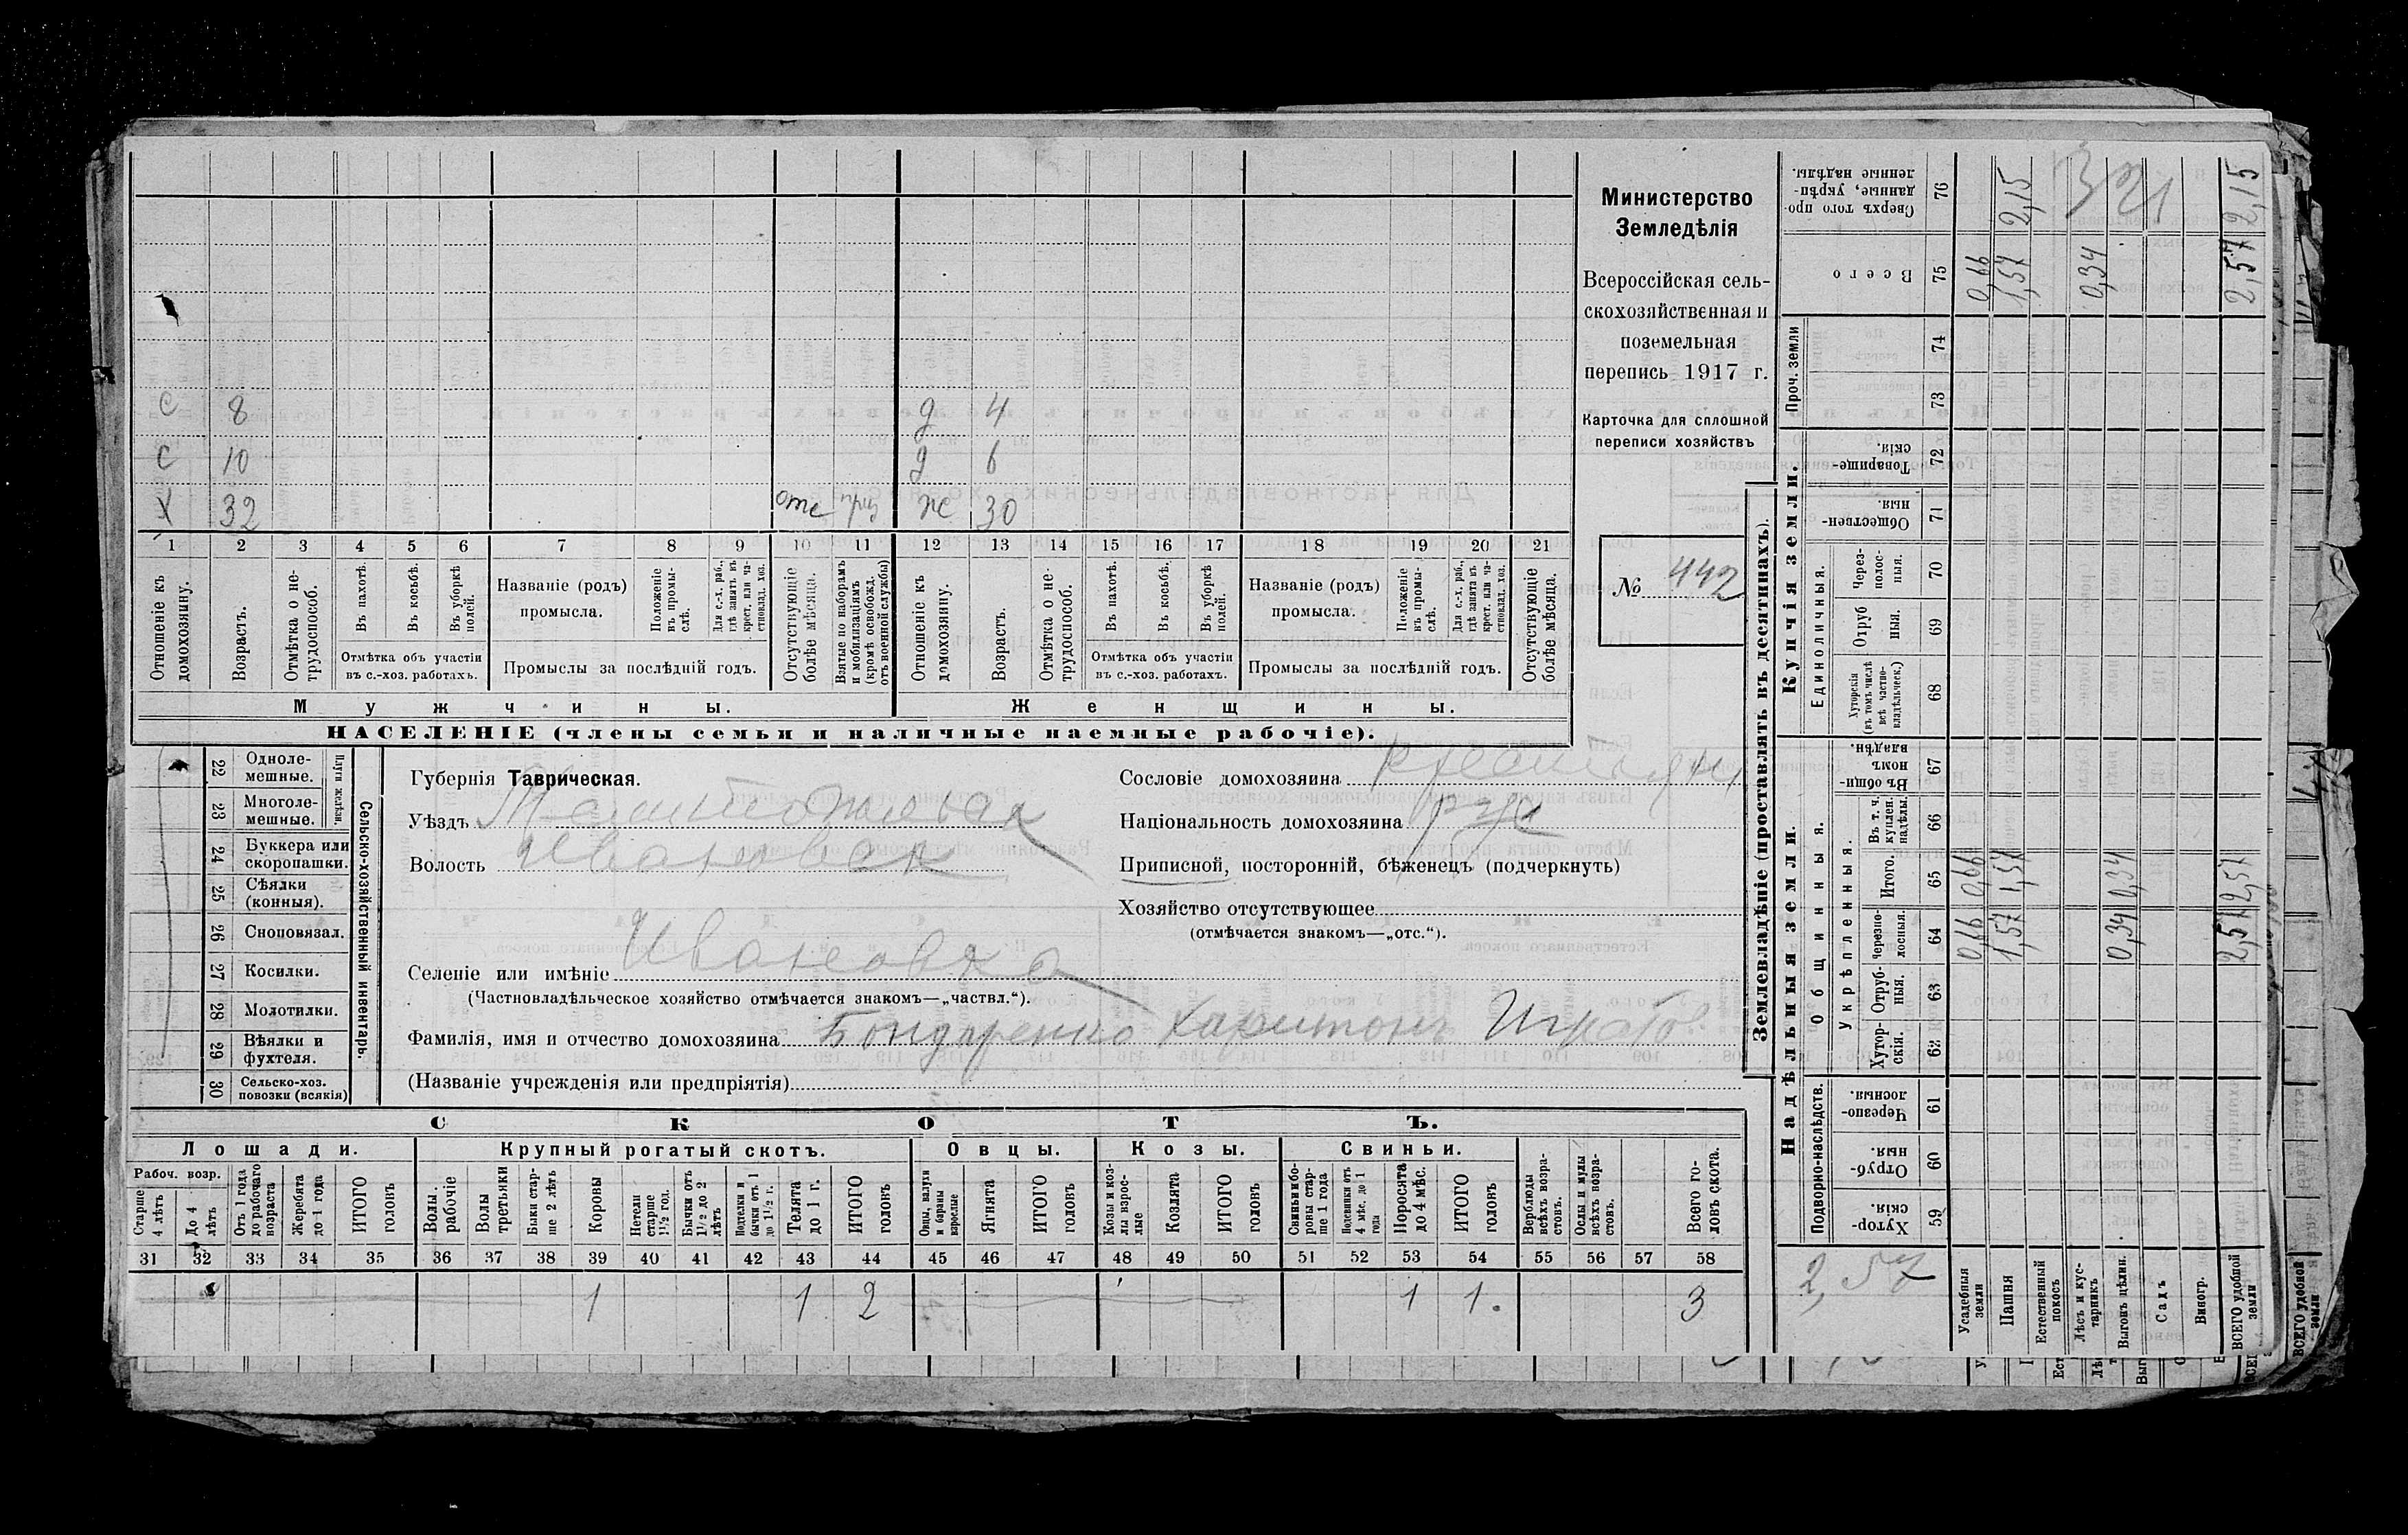 Министерство
Земледѣлія
Всероссійская сель-
скохозяйственная и
поземельная
перепись 1917 г.
Карточка для сплошной
переписи хозяйствъ
№ 442
С 8 д 4
С 10 д 6
Х 32 отс ж 30
1 2 3 4 5 6 7 8 9 10 11 12 13 14 15 16 17 18 19 20 21
Отношеніе къ домохозяину.
Возрастъ.
Отмѣтка о не-трудоспособ.
Въ пахотѣ.
Въ косьбѣ.
Въ уборкѣ полей.
Отмѣтка объ участіи
въ с.-хоз. работахъ.
Названіе (родъ)
промысла.
Положеніе въ промы-слѣ.
Для с.-х. раб., гдѣ занятъ въ крест. или ча-стновлад. хоз.
Промыслы за послѣдній годъ.
Отсутствующіе болѣе мѣсяца.
Взятые по наборамъ и мобилизаціямъ (кромѣ освобожд. отъ военной службы)
Отношеніе къ домохозяину.
Возрастъ.
Отмѣтка о не-трудоспособ.
Въ пахотѣ.
Въ косьбѣ.
Въ уборкѣ полей.
Отмѣтка объ участіи
въ с.-хоз. работахъ.
Названіе (родъ)
промысла.
Положеніе въ промы-слѣ.
Для с.-х. раб., гдѣ занятъ въ крест. или ча-стновлад. хоз.
Промыслы за послѣдній годъ.
Отсутствующіе болѣе мѣсяца.
Мужчины. Женщины.
НАСЕЛЕНІЕ (члены семьи и наличные наемные рабочіе).
22 Одноле-мешные.
23 Многоле-мешные.
Плуги желѣзн.
24 Буккера или скоропашки.
25 Сѣялки (конныя).
26 Сноповязал.
27 Косилки.
28 Молотилки.
29 Вѣялки и фухтеля.
30 Сельско-хоз. повозки (всякія)
Сельско-хозяйственный инвентарь.
Губернія Таврическая.
Уѣздъ Мелитопольск
Волость Ивановск
Селеніе или имѣніе Ивановка
(Частновладѣльческое хозяйство отмѣчается знакомъ—„частвл.“).
Фамилія, имя и отчество домохозяина Бондаренко Харитонъ Игнатов.
(Названіе учрежденія или предпріятія)
Сословіе домохозяина крестьян
Національность домохозяина рус
Приписной, посторонній, бѣженецъ (подчеркнуть)
Хозяйство отсутствующее
(отмѣчается знакомъ—„отс.“).
СКОТЪ.
Лошади. Крупный рогатый скотъ. Овцы. Козы. Свиньи.
Рабоч. возр.
Старше 4 лѣтъ
До 4 лѣтъ
Отъ 1 года до рабочаго возраста
Жеребята до 1 года
ИТОГО головъ
Волы рабочіе
Волы третьяки
Быки стар-ше 2 лѣтъ
Коровы
Нетели старше 1½ год.
Бычки отъ 1½ до 2 лѣтъ
Подтелки и бычки отъ 1 до 1½ г.
Телята до 1 г.
ИТОГО головъ
Овцы, валухи и бараны взрослые
Ягнята
ИТОГО головъ
Козы и коз-лы взрос-лые
Козлята
ИТОГО головъ
Свиньи и бо-ровы стар-ше 1 года
Подсвинки отъ 4 мѣс. до 1 года
Поросята до 4 мѣс.
ИТОГО головъ
Верблюды всѣхъ возра-стовъ.
Ослы и мулы всѣхъ возра-стовъ.
Всего го-ловъ скота.
31 32 33 34 35 36 37 38 39 40 41 42 43 44 45 46 47 48 49 50 51 52 53 54 55 56 57 58
1 1 2 1 1. 3
Землевладѣніе (проставлять въ десятинахъ).
Надѣльныя земли. Купчія земли.
Подворно-наслѣдств.
Общинныя.
Укрѣпленныя.
Единоличныя.
Проч. земли
Сверхъ того про-данные, укрѣп-ленные надѣлы. 76
Всего 75
74
73
Товарище-скія. 72
Обществен-ныя. 71
Через-полос-ныя. 70
Отруб ныя. 69
Хуторскія (въ томъ числѣ всѣ частно-владѣльческ.) 68
Въ общин-номъ владѣн. 67
Въ т. ч. куплен. надѣлы. 66
Итого. 65
черезпо-лосныя. 64
Отруб-ныя. 63
Хутор-скія. 62
Черезпо-лосныя. 61
Отруб-ныя. 60
Хутор-скія. 59
2,57
Усадебныя земли 0,66 0,66 0,66
Пашня 1,57 1,57 1,57 2,15
Естественный покосъ
Лѣсъ и кус-тарникъ
Выгонъ цѣлин. 0,34 0,34 0,34
Садъ
Виногр.
ВСЕГО удобной земли 2,57 2,57 2,57 2,15
321
ВСЕГО удобной земли